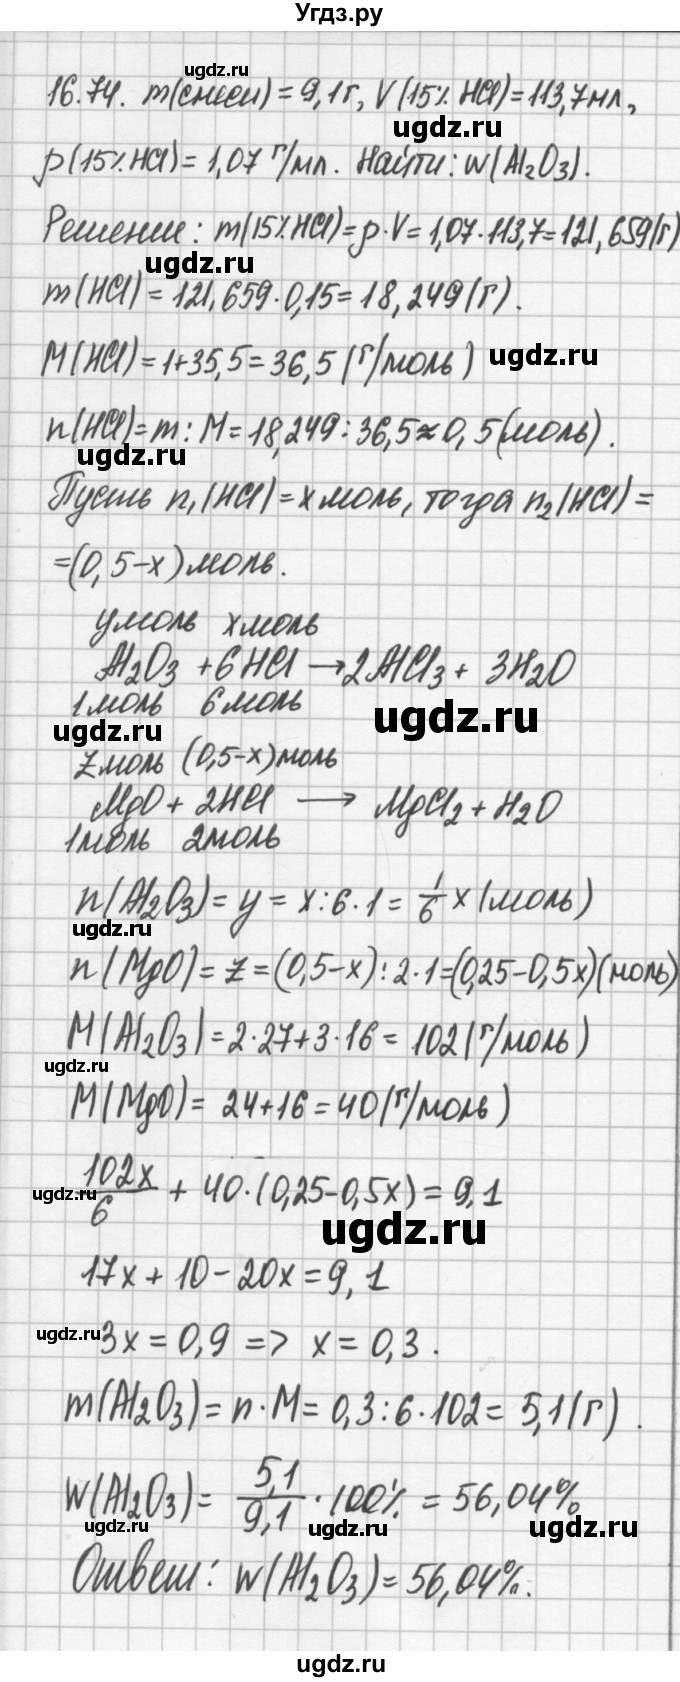 Угдз.ру
ugdz.ru
16.74. m(смеси) = 9,1 г, V(15% HCl) = 113,7 мл,
ugdz.ru
ρ(15% HCl) = 1,07 г/мл. Найти: w(Al₂O₃).
Решение: m(15% HCl) = ρ·V = 1,07·113,7 = 121,659(г)
ugdz.ru
m(HCl) = 121,659·0,15 = 18,249(г).
M(HCl) = 1+35,5 = 36,5 (г/моль)
ugdz.ru
n(HCl) = m : M = 18,249 : 36,5 ≈ 0,5(моль).
ugdz.ru
Пусть n₁(HCl) = x моль, тогда n₂(HCl) =
= (0,5-x) моль.
y моль x моль
Al₂O₃ + 6HCl → 2AlCl₃ + 3H₂O
1 моль 6 моль
ugdz.ru
ugdz.ru
z моль (0,5-x) моль
MgO + 2HCl → MgCl₂ + H₂O
1 моль 2 моль
n(Al₂O₃) = y = x : 6·1 = 1/6 x (моль)
ugdz.ru
n(MgO) = z = (0,5-x) : 2·1 = (0,25-0,5x)(моль)
M(Al₂O₃) = 2·27+3·16 = 102(г/моль)
ugdz.ru
M(MgO) = 24+16 = 40(г/моль)
102x/6 + 40·(0,25-0,5x) = 9,1
ugdz.ru
ugdz.ru
17x + 10 - 20x = 9,1
ugdz.ru
3x = 0,9 => x = 0,3.
m(Al₂O₃) = n·M = 0,3 : 6·102 = 5,1(г).
w(Al₂O₃) = 5,1/9,1 · 100% = 56,04%
ugdz.ru
ugdz.ru
ugdz.ru
Ответ: w(Al₂O₃) = 56,04%.
ugdz.ru